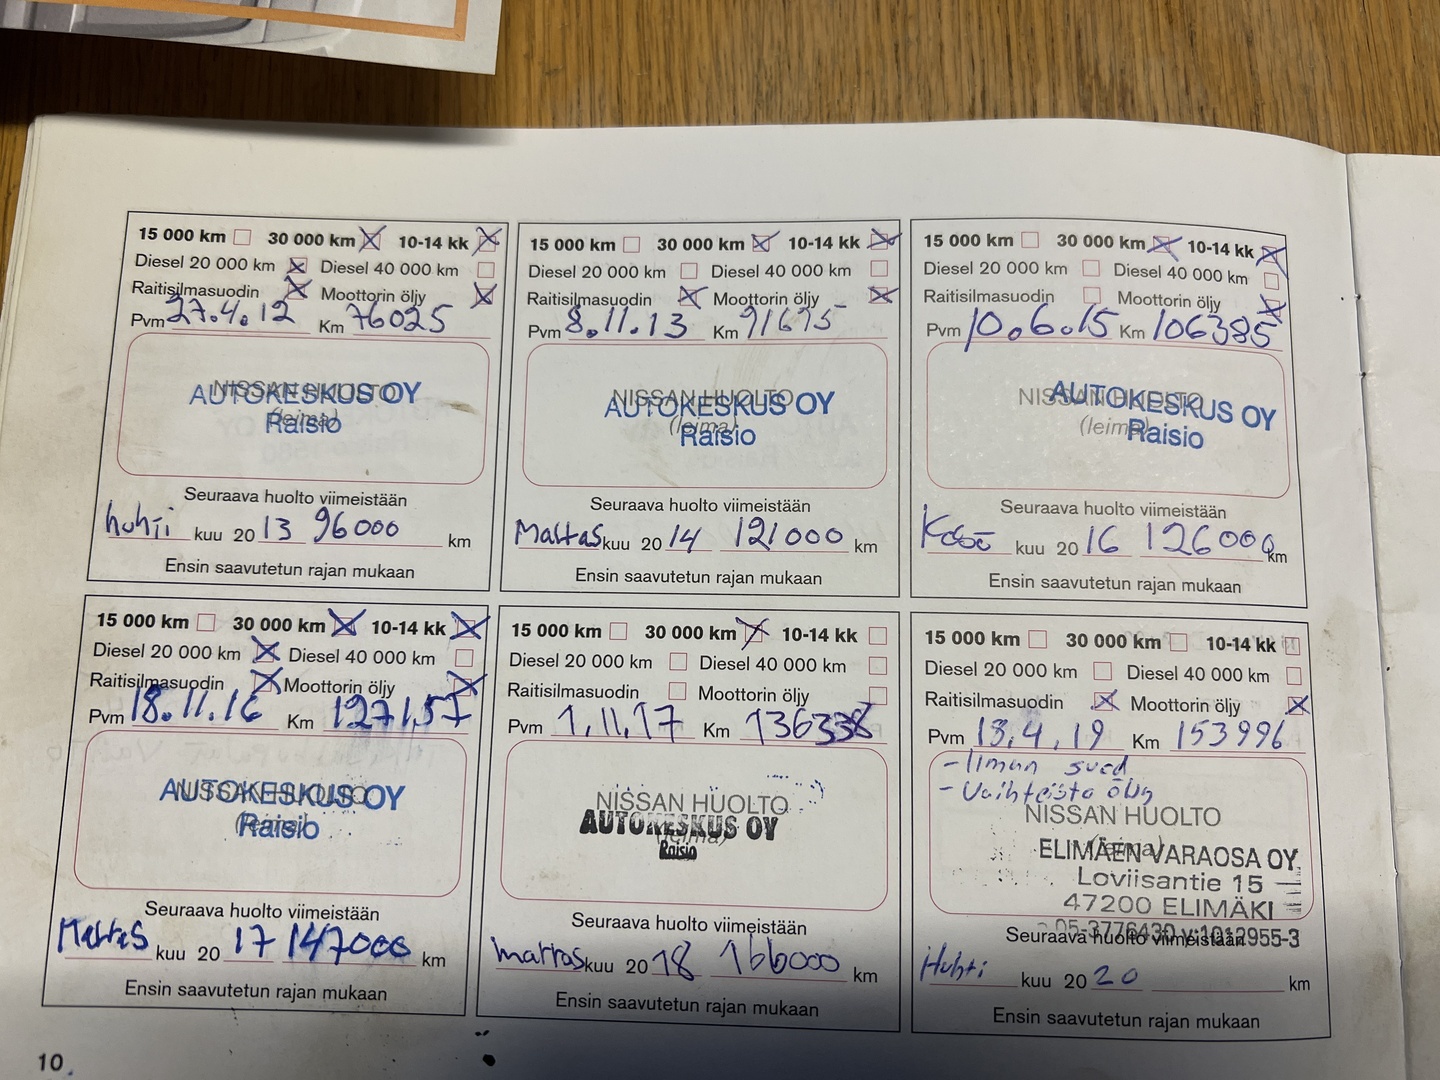 15 000 km 30 000 km 10-14 kk
Diesel 20 000 km Diesel 40 000 km
Raitisilmasuodin Moottorin öljy
Pvm 27.4.12 Km 76025
NISSAN HUOLTO
AUTOKESKUS OY
(leima)
Raisio
Seuraava huolto viimeistään
huhti kuu 20 13 96000 km
Ensin saavutetun rajan mukaan
15 000 km 30 000 km 10-14 kk
Diesel 20 000 km Diesel 40 000 km
Raitisilmasuodin Moottorin öljy
Pvm 8.11.13 Km 91675
NISSAN HUOLTO
AUTOKESKUS OY
(leima)
Raisio
Seuraava huolto viimeistään
Marras kuu 20 14 121000 km
Ensin saavutetun rajan mukaan
15 000 km 30 000 km 10-14 kk
Diesel 20 000 km Diesel 40 000 km
Raitisilmasuodin Moottorin öljy
Pvm 10.6.15 Km 106385
NISSAN HUOLTO
AUTOKESKUS OY
(leima)
Raisio
Seuraava huolto viimeistään
Kesä kuu 20 16 126000 km
Ensin saavutetun rajan mukaan
15 000 km 30 000 km 10-14 kk
Diesel 20 000 km Diesel 40 000 km
Raitisilmasuodin Moottorin öljy
Pvm 18.11.16 Km 127157
NISSAN HUOLTO
AUTOKESKUS OY
(leima)
Raisio
Seuraava huolto viimeistään
Marras kuu 20 17 147000 km
Ensin saavutetun rajan mukaan
15 000 km 30 000 km 10-14 kk
Diesel 20 000 km Diesel 40 000 km
Raitisilmasuodin Moottorin öljy
Pvm 1.11.17 Km 136338
NISSAN HUOLTO
AUTOKESKUS OY
(leima)
Raisio
Seuraava huolto viimeistään
marras kuu 20 18 166000 km
Ensin saavutetun rajan mukaan
15 000 km 30 000 km 10-14 kk
Diesel 20 000 km Diesel 40 000 km
Raitisilmasuodin Moottorin öljy
Pvm 13.4.19 Km 153996
- Ilman suod
- Vaihteisto öljy
NISSAN HUOLTO
(leima)
ELIMÄEN VARAOSA OY
Loviisantie 15
47200 ELIMÄKI
05-3776430 y:1012955-3
Seuraava huolto viimeistään
Huhti kuu 20 20 km
Ensin saavutetun rajan mukaan
10